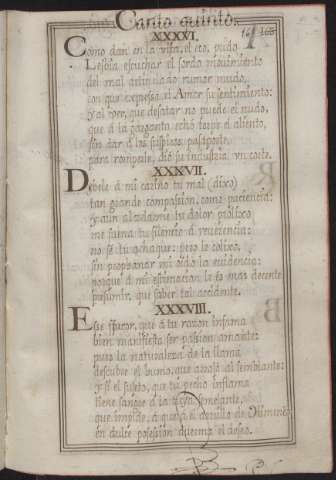 Canto quinto.
XXXVI.
Como dan en la vista, el eco, pudo
Lesbia escuchar el sordo movimiento
del mal articulado rumor mudo,
con que expressa el Amor su sentimiento:
y al ver, que desatar no puede el nudo,
que à la garganta echò torpe el aliento,
sin dar à los suspiros passaporte,
para romperle, diò su industria un corte.
XXXVII.
Debele à mi cariño tu mal (dixo)
tan grande compasion, como paciencia:
y aun al zelarme tu dolor prolixo
me suena tu silencio à
no sè tu achaque: pero le colixo,
sin prophanar mi oido la evidencia:
porque à mi estimacion le es mas decente
presumir, que saber tal accidente.
XXXVIII.
Esse que à tu razon infama
bien manifiesta ser passion amante:
pues la naturaleza de la llama
descubre el humo, que arroja al semblante:
y si el sujeto, que tu pecho inflama
tiene sangre à la tuya semejante,
que impide, à que
en dulce posession duerma el deseo.